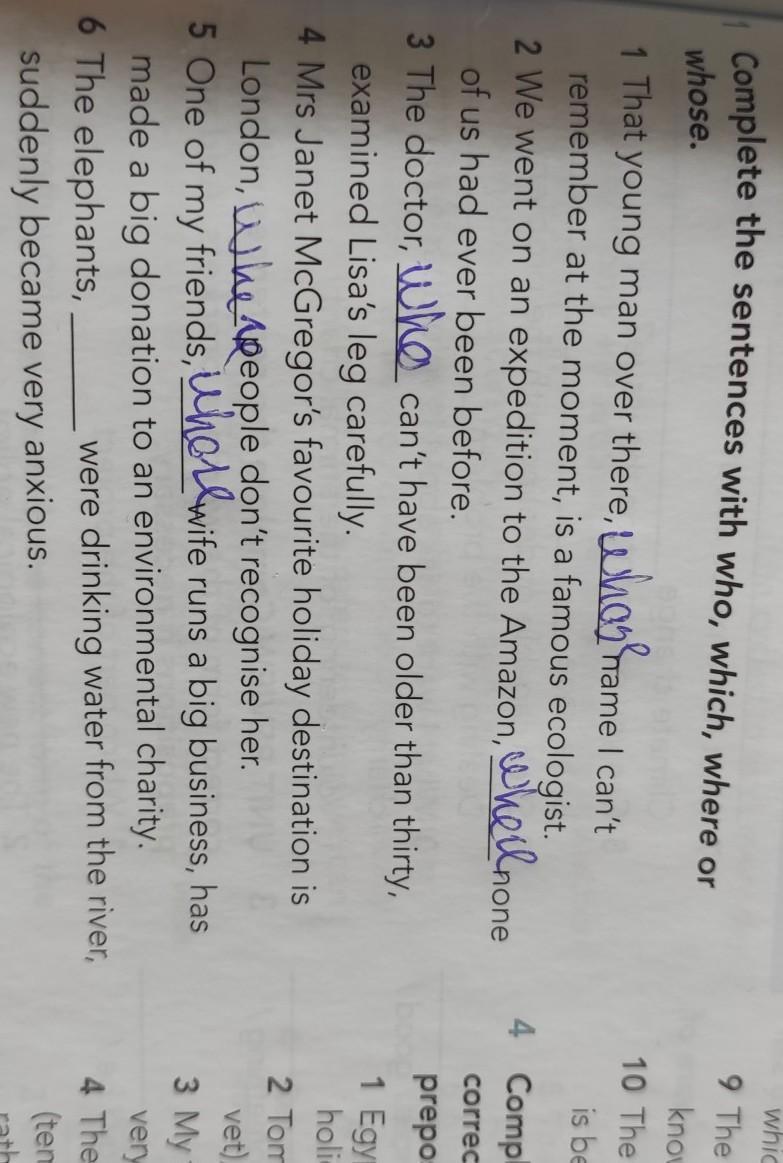 1 Complete the sentences with who, which, where or
whose.
1 That young man over there, whose name I can't
remember at the moment, is a famous ecologist.
2 We went on an expedition to the Amazon, where none
of us had ever been before.
3 The doctor, who can't have been older than thirty,
examined Lisa's leg carefully.
4 Mrs Janet McGregor's favourite holiday destination is
London, where people don't recognise her.
5 One of my friends, whose wife runs a big business, has
made a big donation to an environmental charity.
6 The elephants, ______ were drinking water from the river,
suddenly became very anxious.
9 The
10 The
is be
4 Compl
correc
prepo
1 Egy
holi
2 Tom
vet)
3 My
very
4 The
(ten